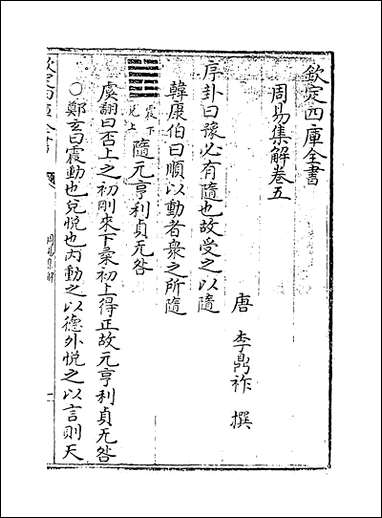 欽定四庫全書
周易集解卷五
唐 李鼎祚 撰
序卦曰豫必有隨也故受之以隨
韓康伯曰順以動者衆之所隨
震下
兌上
隨元亨利貞无咎
虞翻曰否上之初剛來下柔初上得正故元亨利貞无咎
○鄭玄曰震動也兌悅也内動之以德外悅之以言則天
欽定四庫全書
周易集解
一